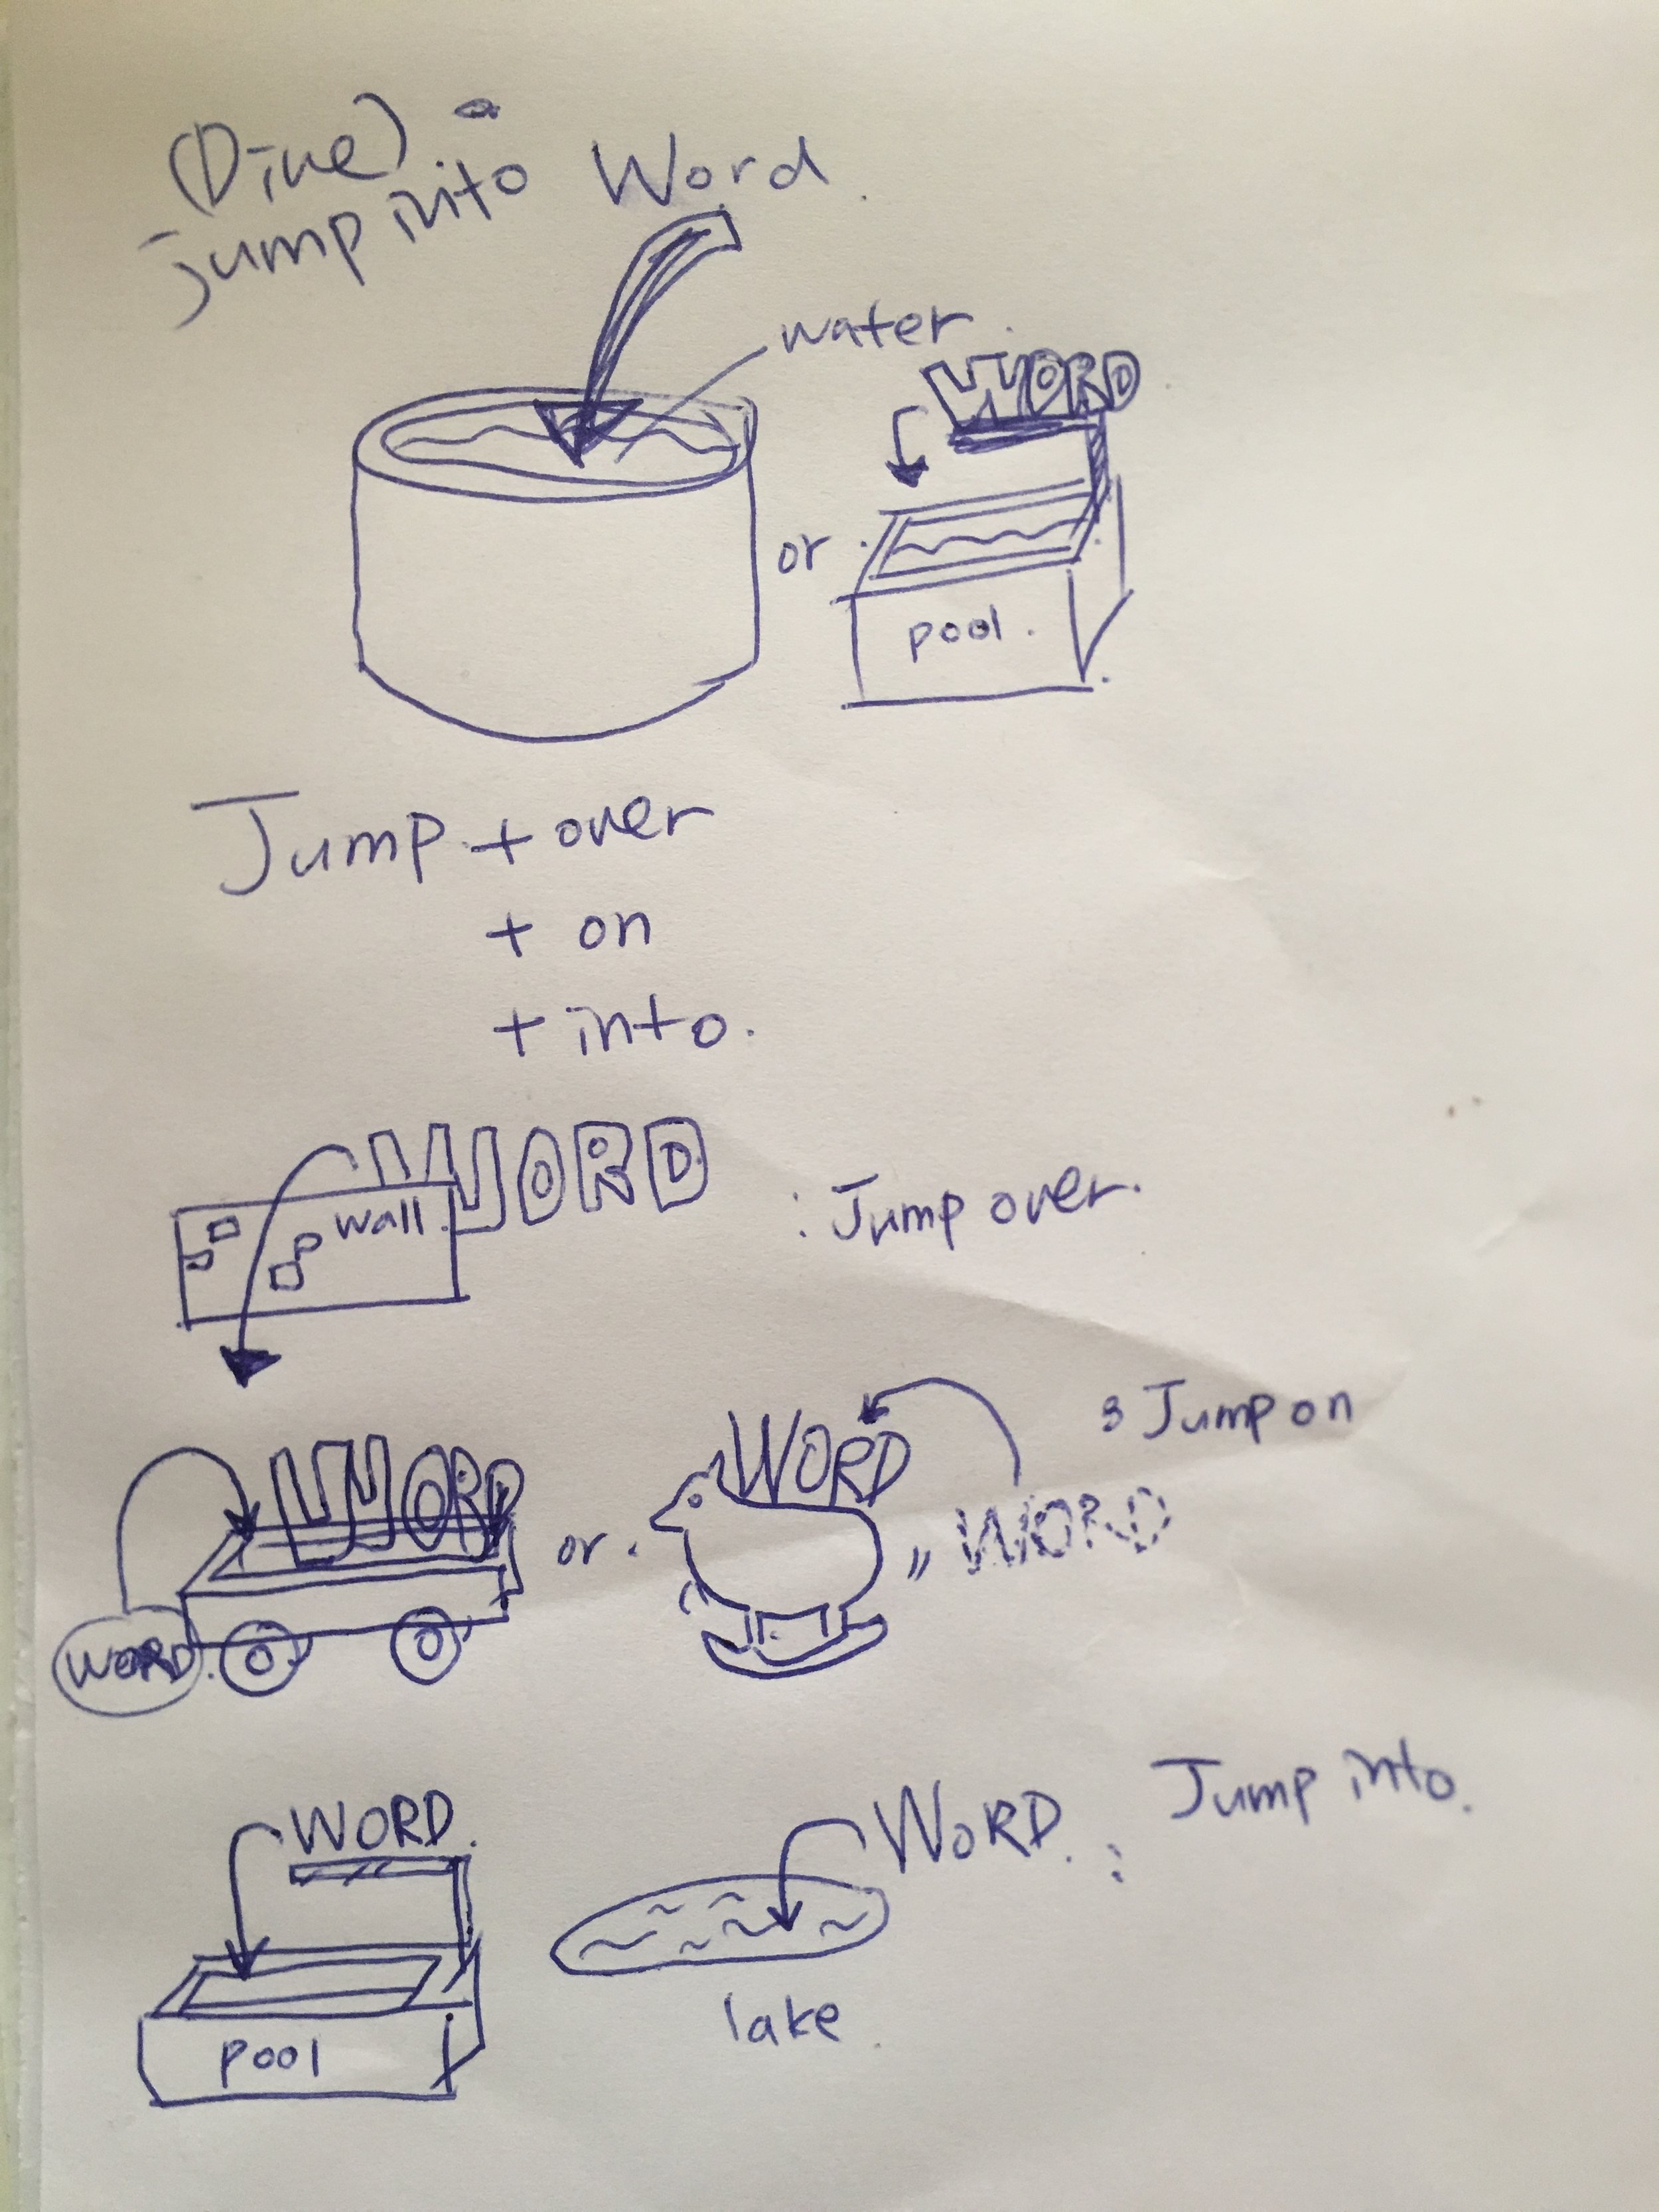 (Dive)
jump into Word.
water.
WORD
or
pool.
Jump + over
+ on
+ into.
WORD
wall.
: Jump over.
WORD
: Jump on
WORD
or.
WORD
WORD.
WORD.
WORD. : Jump into.
pool
lake.